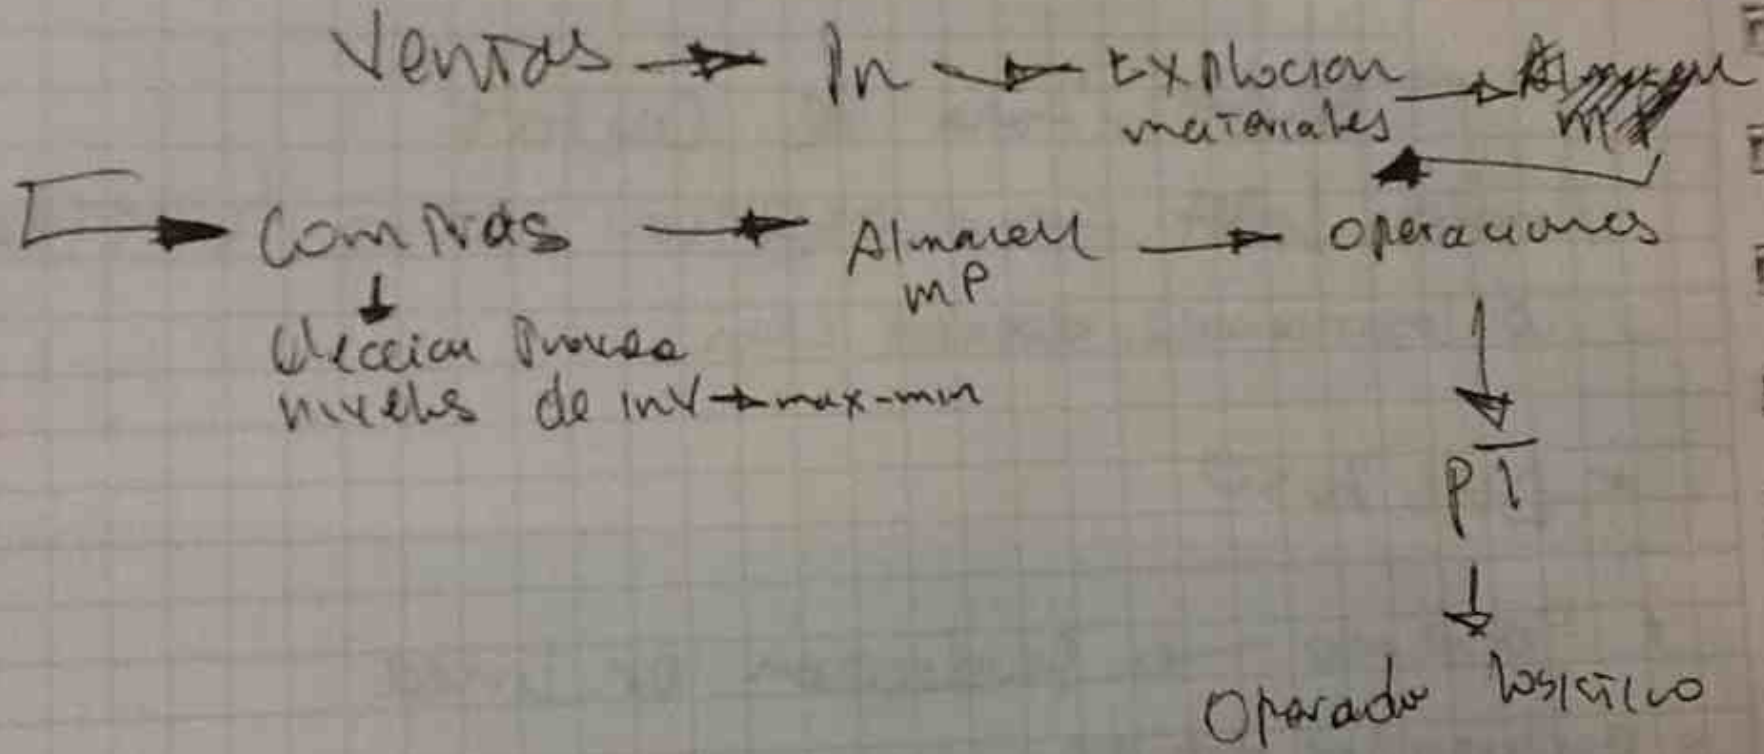 Ventas → Pn → Explocion → Almacen
materiales MP
Compras → Almacen → Operaciones
MP
Eleccion Provee
niveles de inv → max-min
PT
Operador logistico